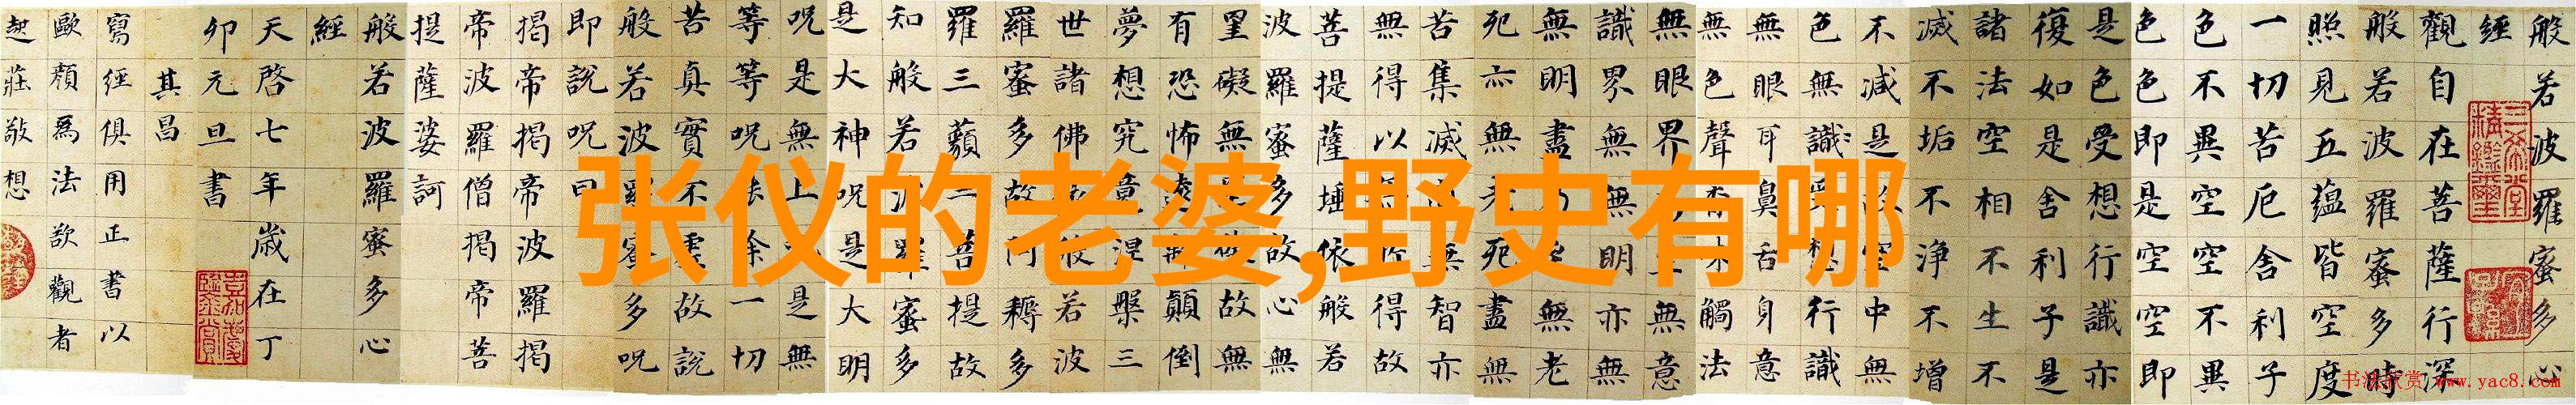 般若波羅蜜多心
經
觀自在菩薩行深
般若波羅蜜多時
照見五蘊皆空度
一切苦厄舍利子
色不異空空不異
色色即是空空即
是色受想行識亦
復如是舍利子是
諸法空相不生不
滅不垢不淨不增
不減是故空中無
色無識受想行識
無眼耳鼻舌身意
無色聲香味觸法
無眼界無意
識界無無明亦無
無明盡乃至無老
死亦無老死盡無
苦集滅道無智亦
無得以無所得故
菩提薩埵依般若
波羅蜜多故心無
罣礙無罣礙故無
有恐怖遠離顛倒
夢想究竟涅槃三
世諸佛依般若波
羅蜜多故阿耨多
羅三藐三菩提故
知般若波羅蜜多
是大神呪是大明
呪是無上呪是無
等等呪能除一切
苦真實不虛故說
般若波羅蜜多呪
即說呪曰
揭帝揭帝波羅揭
帝波羅僧揭帝菩
提薩婆訶
般若波羅蜜多心
經
天啓七年歲在丁
卯元旦書
其昌
寫經俱用正書以
歐顏爲法欲觀者
起莊敬想
三希堂精鑑璽
张仪的老婆,野史有哪
书法欣赏 www.yac8.com